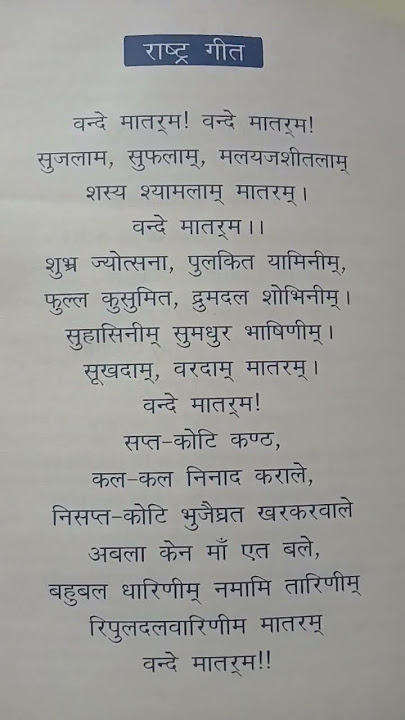 राष्ट्र गीत
वन्दे मातर्‌म! वन्दे मातर्‌म!
सुजलाम, सुफलाम्, मलयजशीतलाम्
शस्य श्यामलाम् मातरम्।
वन्दे मातर्‌म।।
शुभ्र ज्योत्सना, पुलकित यामिनीम्,
फुल्ल कुसुमित, द्रुमदल शोभिनीम्।
सुहासिनीम् सुमधुर भाषिणीम्।
सूखदाम्, वरदाम् मातरम्।
वन्दे मातर्‌म!
सप्त-कोटि कण्ठ,
कल-कल निनाद कराले,
निसप्त-कोटि भुजैघ्रत खरकरवाले
अबला केन माँ एत बले,
बहुबल धारिणीम् नमामि तारिणीम्
रिपुलदलवारिणीम मातरम्
वन्दे मातर्‌म!!